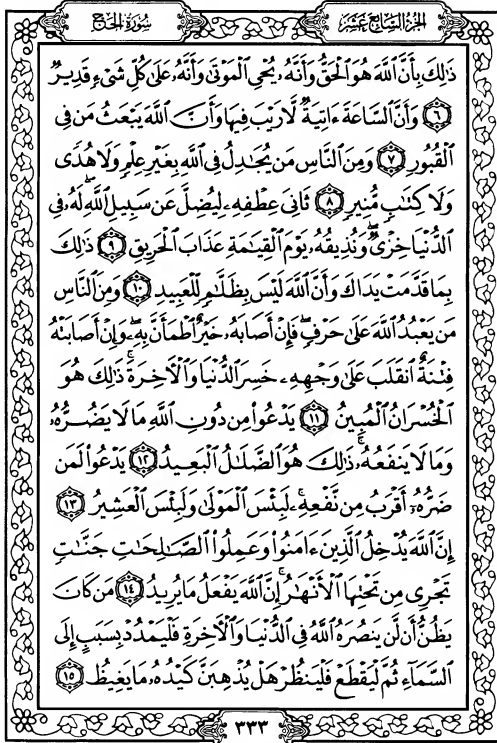 الجزء السابع عشر
سورة الحج
ذَٰلِكَ بِأَنَّ ٱللَّهَ هُوَ ٱلْحَقُّ وَأَنَّهُۥ يُحْىِ ٱلْمَوْتَىٰ وَأَنَّهُۥ عَلَىٰ كُلِّ شَىْءٍ قَدِيرٌ
﴿٦﴾ وَأَنَّ ٱلسَّاعَةَ ءَاتِيَةٌ لَّا رَيْبَ فِيهَا وَأَنَّ ٱللَّهَ يَبْعَثُ مَن فِى
ٱلْقُبُورِ ﴿٧﴾ وَمِنَ ٱلنَّاسِ مَن يُجَٰدِلُ فِى ٱللَّهِ بِغَيْرِ عِلْمٍ وَلَا هُدًى
وَلَا كِتَٰبٍ مُّنِيرٍ ﴿٨﴾ ثَانِىَ عِطْفِهِۦ لِيُضِلَّ عَن سَبِيلِ ٱللَّهِ ۖ لَهُۥ فِى
ٱلدُّنْيَا خِزْىٌ ۖ وَنُذِيقُهُۥ يَوْمَ ٱلْقِيَٰمَةِ عَذَابَ ٱلْحَرِيقِ ﴿٩﴾ ذَٰلِكَ
بِمَا قَدَّمَتْ يَدَاكَ وَأَنَّ ٱللَّهَ لَيْسَ بِظَلَّٰمٍ لِّلْعَبِيدِ ﴿١٠﴾ وَمِنَ ٱلنَّاسِ
مَن يَعْبُدُ ٱللَّهَ عَلَىٰ حَرْفٍ ۖ فَإِنْ أَصَابَهُۥ خَيْرٌ ٱطْمَأَنَّ بِهِۦ ۖ وَإِنْ أَصَابَتْهُ
فِتْنَةٌ ٱنقَلَبَ عَلَىٰ وَجْهِهِۦ خَسِرَ ٱلدُّنْيَا وَٱلْءَاخِرَةَ ۚ ذَٰلِكَ هُوَ
ٱلْخُسْرَانُ ٱلْمُبِينُ ﴿١١﴾ يَدْعُوا۟ مِن دُونِ ٱللَّهِ مَا لَا يَضُرُّهُۥ
وَمَا لَا يَنفَعُهُۥ ۚ ذَٰلِكَ هُوَ ٱلضَّلَٰلُ ٱلْبَعِيدُ ﴿١٢﴾ يَدْعُوا۟ لَمَن
ضَرُّهُۥٓ أَقْرَبُ مِن نَّفْعِهِۦ ۚ لَبِئْسَ ٱلْمَوْلَىٰ وَلَبِئْسَ ٱلْعَشِيرُ ﴿١٣﴾
إِنَّ ٱللَّهَ يُدْخِلُ ٱلَّذِينَ ءَامَنُوا۟ وَعَمِلُوا۟ ٱلصَّٰلِحَٰتِ جَنَّٰتٍ
تَجْرِى مِن تَحْتِهَا ٱلْأَنْهَٰرُ ۚ إِنَّ ٱللَّهَ يَفْعَلُ مَا يُرِيدُ ﴿١٤﴾ مَن كَانَ
يَظُنُّ أَن لَّن يَنصُرَهُ ٱللَّهُ فِى ٱلدُّنْيَا وَٱلْءَاخِرَةِ فَلْيَمْدُدْ بِسَبَبٍ إِلَى
ٱلسَّمَآءِ ثُمَّ لْيَقْطَعْ فَلْيَنظُرْ هَلْ يُذْهِبَنَّ كَيْدُهُۥ مَا يَغِيظُ ﴿١٥﴾
٣٣٣